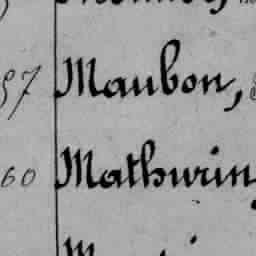 57 Maubon,
60 Mathurin